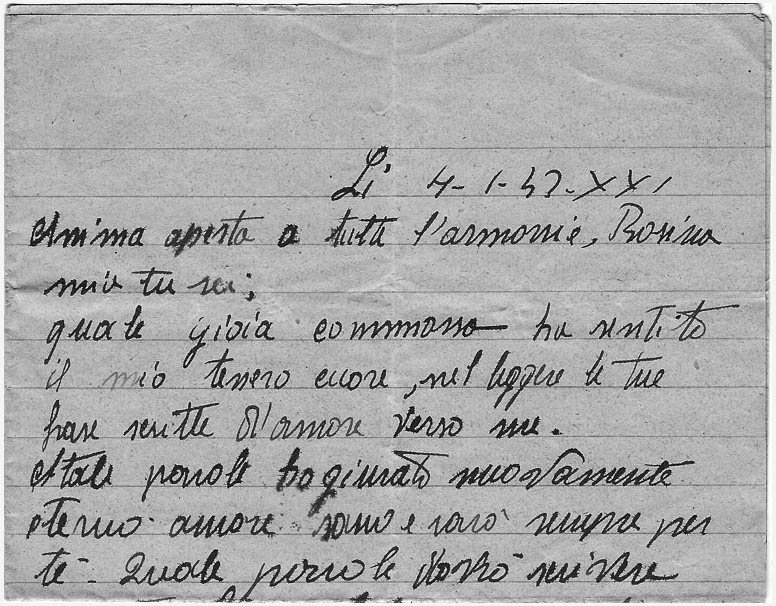 Li 4-1-43-XXI
Anima aperta a tutte l'armonie, Rosina
mia tu sei;
quale gioia commossa ha sentito
il mio tenero cuore, nel leggere le tue
frase scritte d'amore verso me.
A tale parole ho giurato nuovamente
eterno amore sono e sarò sempre per
te- Quale parole dovrò scrivere